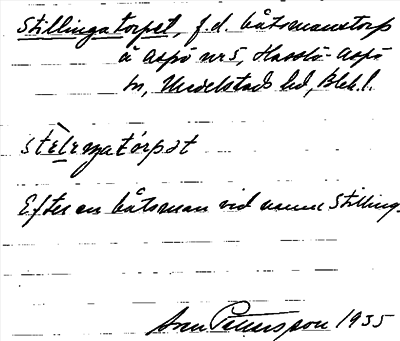 Stillingatorpet, f.d. båtsmanstorp
å Aspö nr 5, Hasslö-Aspö
sn, Medelstads hd, Blek. l.
stèleŋatórpət
Efter en båtsman vid namn Stilling.
Sven Petersson 1935